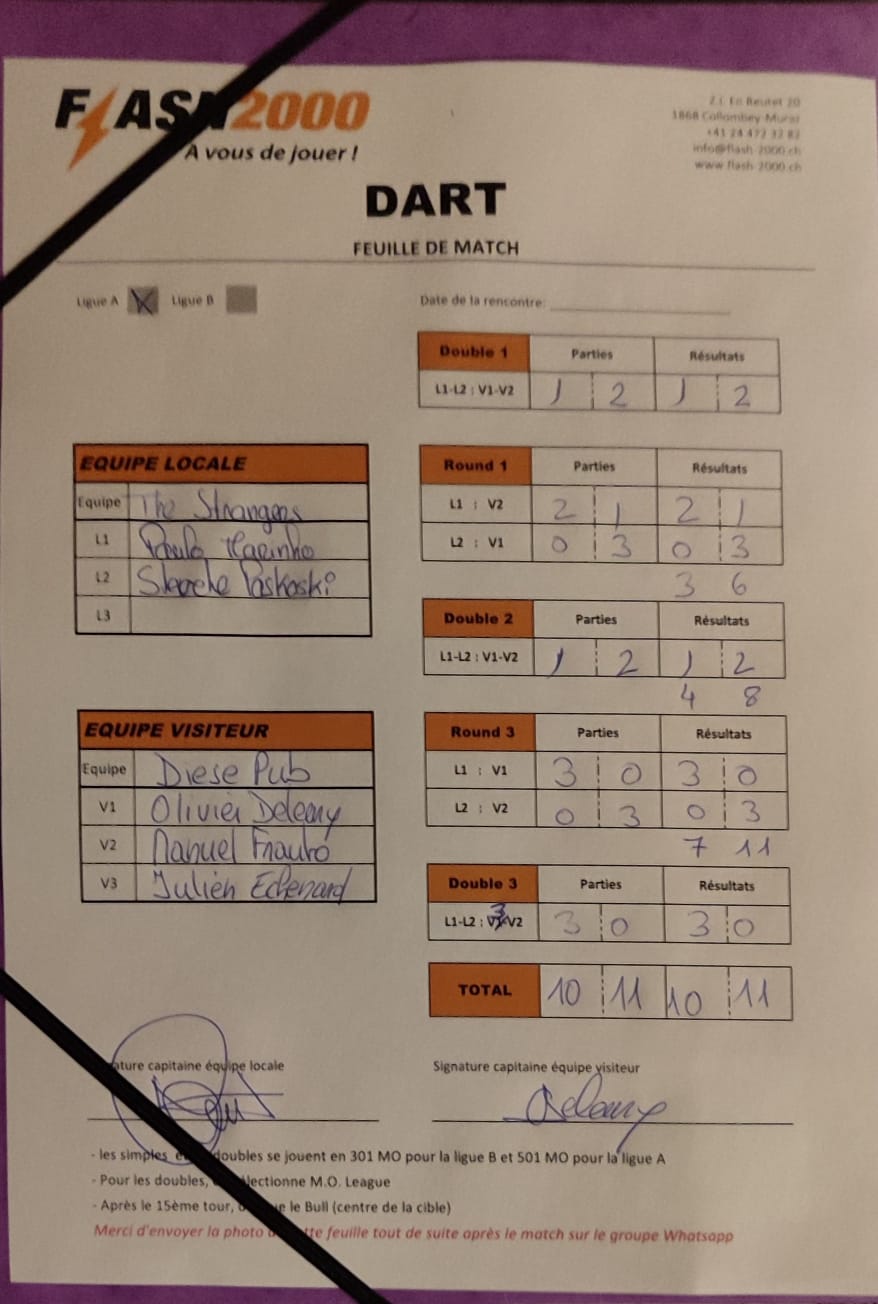 FLASH2000
A vous de jouer !
Z.I. En Reutet 20
1868 Collombey-Muraz
+41 24 472 32 82
info@flash-2000.ch
www.flash-2000.ch
DART
FEUILLE DE MATCH
Ligue A X Ligue B
Date de la rencontre:
Double 1 Parties Résultats
L1-L2 : V1-V2 1 2 1 2
EQUIPE LOCALE
Equipe The Strangers
L1 Paulo
L2
L3
Round 1 Parties Résultats
L1 : V2 2 1 2 1
L2 : V1 0 3 0 3
3 6
Double 2 Parties Résultats
L1-L2 : V1-V2 1 2 1 2
4 8
EQUIPE VISITEUR
Equipe Diese Pub
V1 Olivier Deleamy
V2 Manuel
V3 Julien Echenard
Round 3 Parties Résultats
L1 : V1 3 0 3 0
L2 : V2 0 3 0 3
7 11
Double 3 Parties Résultats
L1-L2 : V3-V2 3 0 3 0
TOTAL 10 11 10 11
ature capitaine équipe locale
Signature capitaine équipe visiteur
- les simples e doubles se jouent en 301 MO pour la ligue B et 501 MO pour la ligue A
- Pour les doubles, lectionne M.O. League
- Après le 15ème tour, ue le Bull (centre de la cible)
Merci d'envoyer la photo tte feuille tout de suite après le match sur le groupe Whatsapp